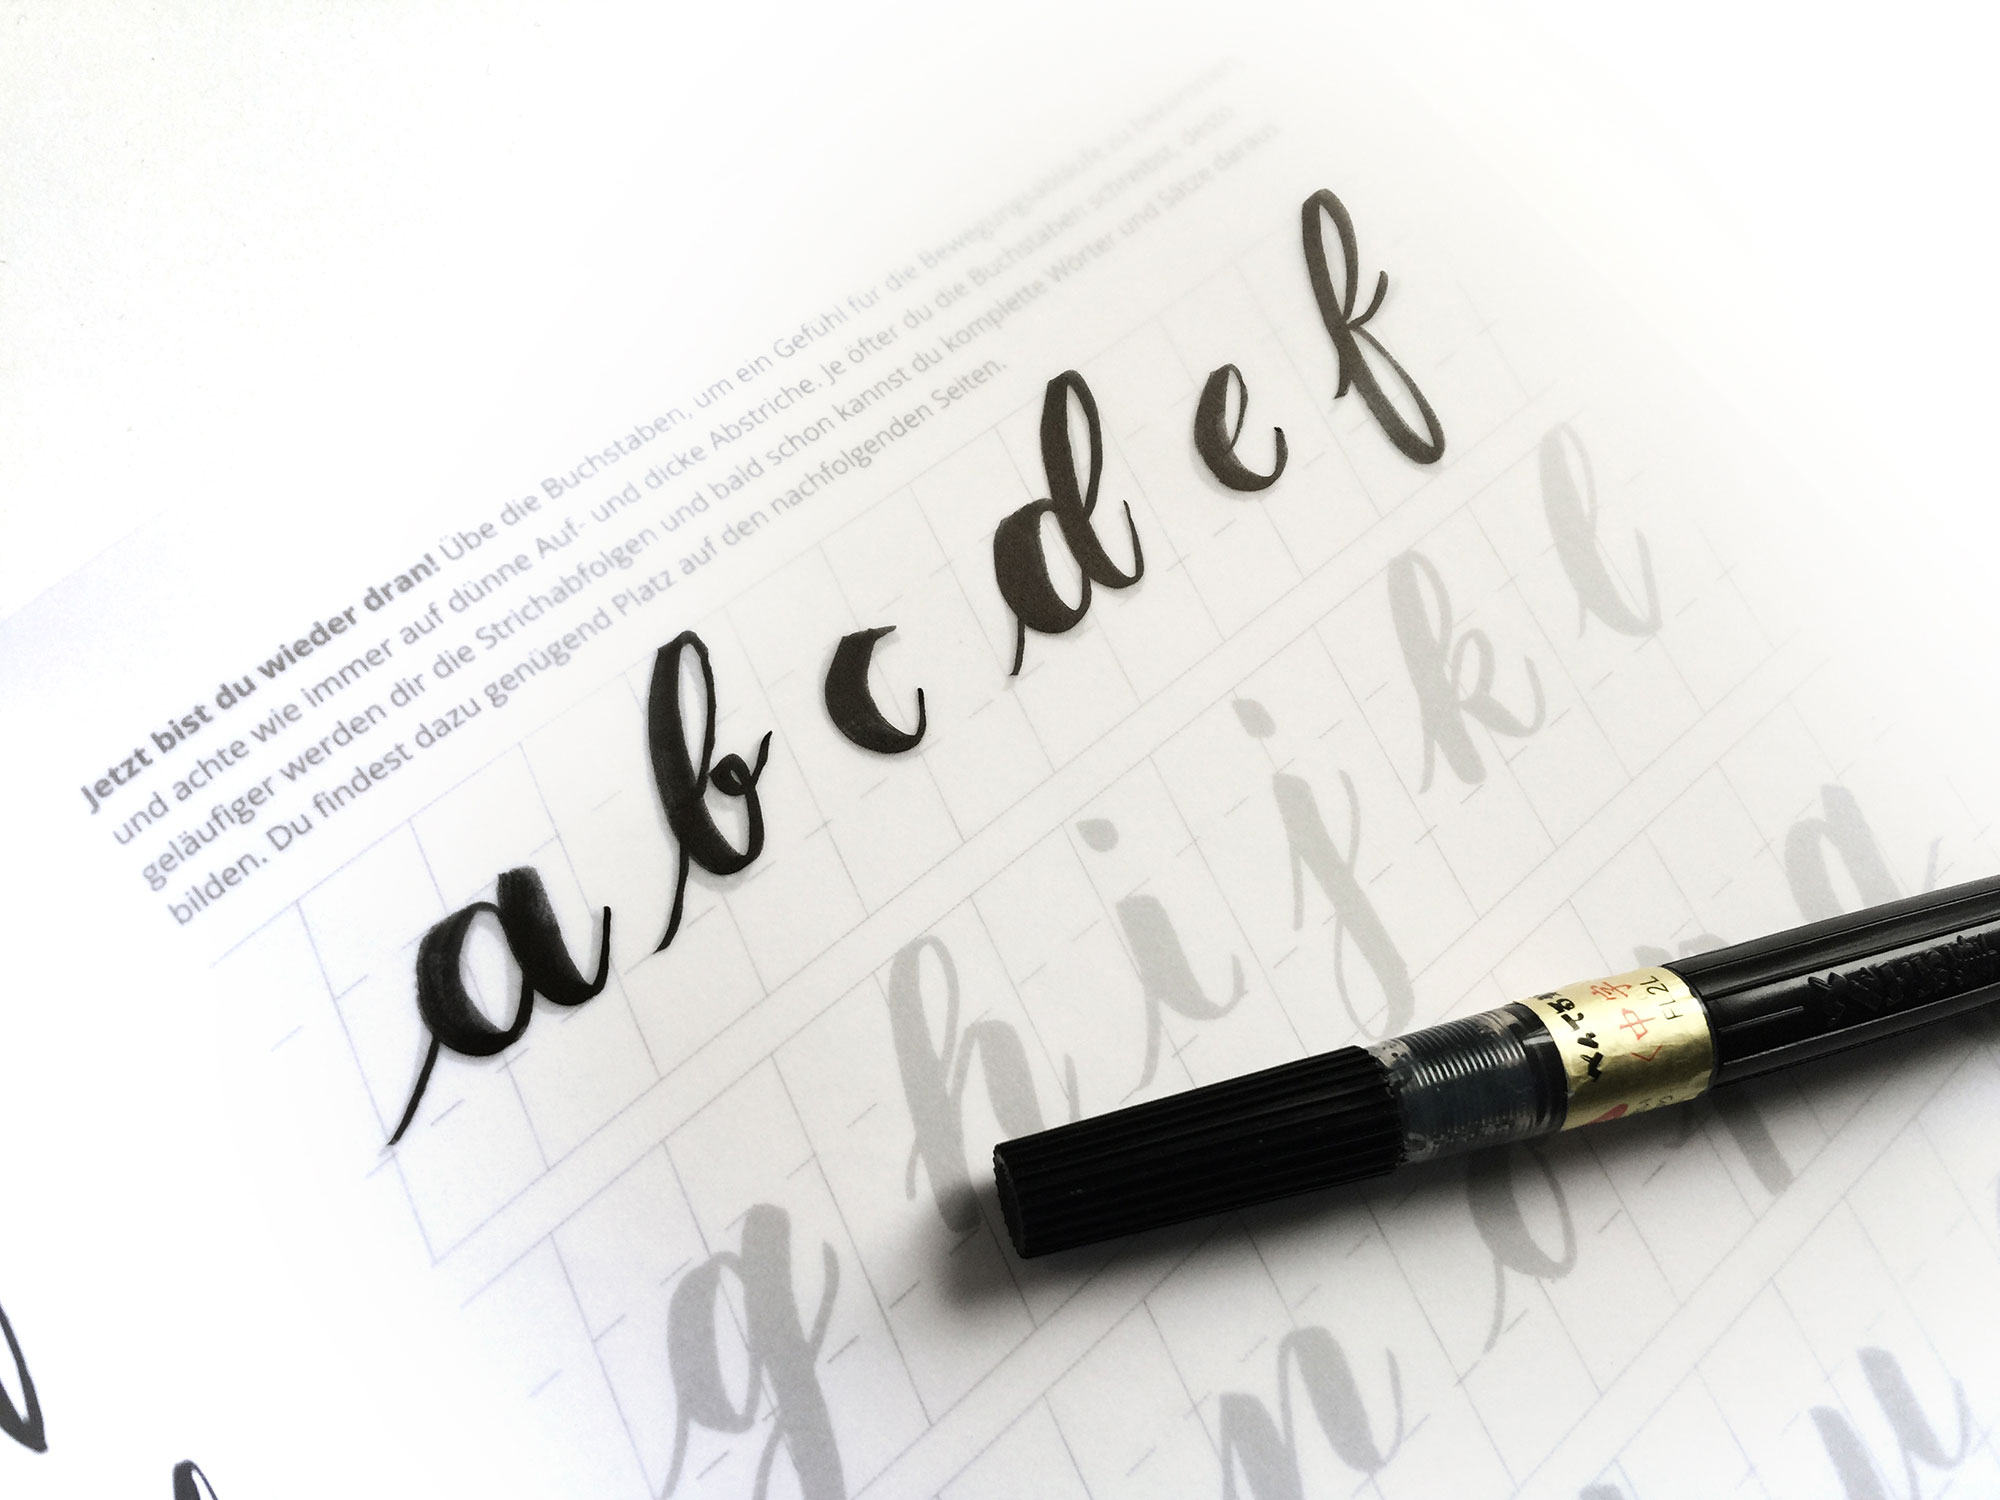 Jetzt bist du wieder dran! Übe die Buchstaben, um ein Gefühl für die Bewegungsabläufe zu bekommen
und achte wie immer auf dünne Auf- und dicke Abstriche. Je öfter du die Buchstaben schreibst, desto
geläufiger werden dir die Strichabfolgen und bald schon kannst du komplette Wörter und Sätze daraus
bilden. Du findest dazu genügend Platz auf den nachfolgenden Seiten.
a b c d e f
g h i j k l
n o p q
u
く中字
FL2L